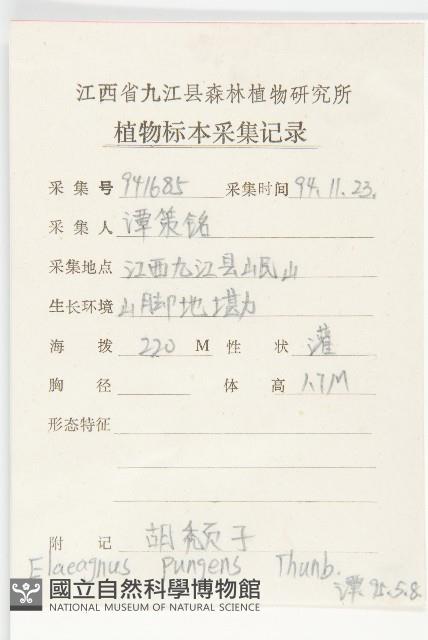 江西省九江县森林植物研究所
植物标本采集记录
采集号 941685 采集时间 94.11.23.
采集人 谭策铭
采集地点 江西九江县岷山
生长环境 山脚地堪
海拨 220 M 性状 灌
胸径 体高 1.7M
形态特征
附记 胡颓子
Elaeagnus Pungens Thunb.
谭 95.5.8.
國立自然科學博物館
NATIONAL MUSEUM OF NATURAL SCIENCE